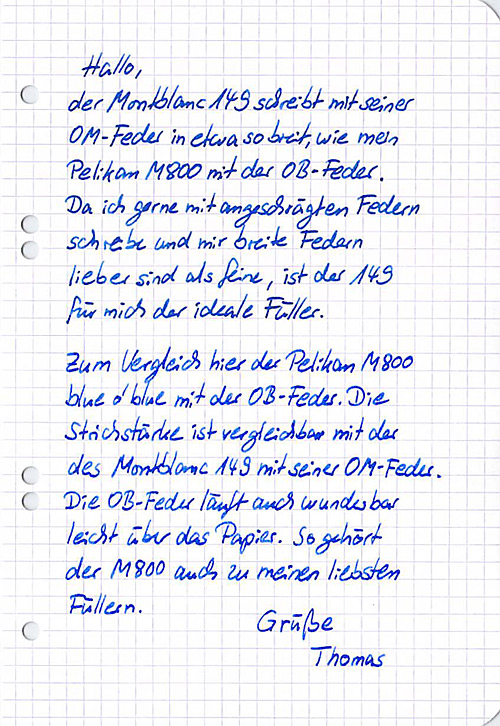 Hallo,
der Montblanc 149 schreibt mit seiner
OM-Feder in etwa so breit, wie mein
Pelikan M800 mit der OB-Feder.
Da ich gerne mit angeschrägten Federn
schreibe und mir breite Federn
lieber sind als feine, ist der 149
für mich der ideale Füller.
Zum Vergleich hier der Pelikan M800
blue o' blue mit der OB-Feder. Die
Strichstärke ist vergleichbar mit der
des Montblanc 149 mit seiner OM-Feder.
Die OB-Feder läuft auch wunderbar
leicht über das Papier. So gehört
der M800 auch zu meinen liebsten
Füllern.
Grüße
Thomas